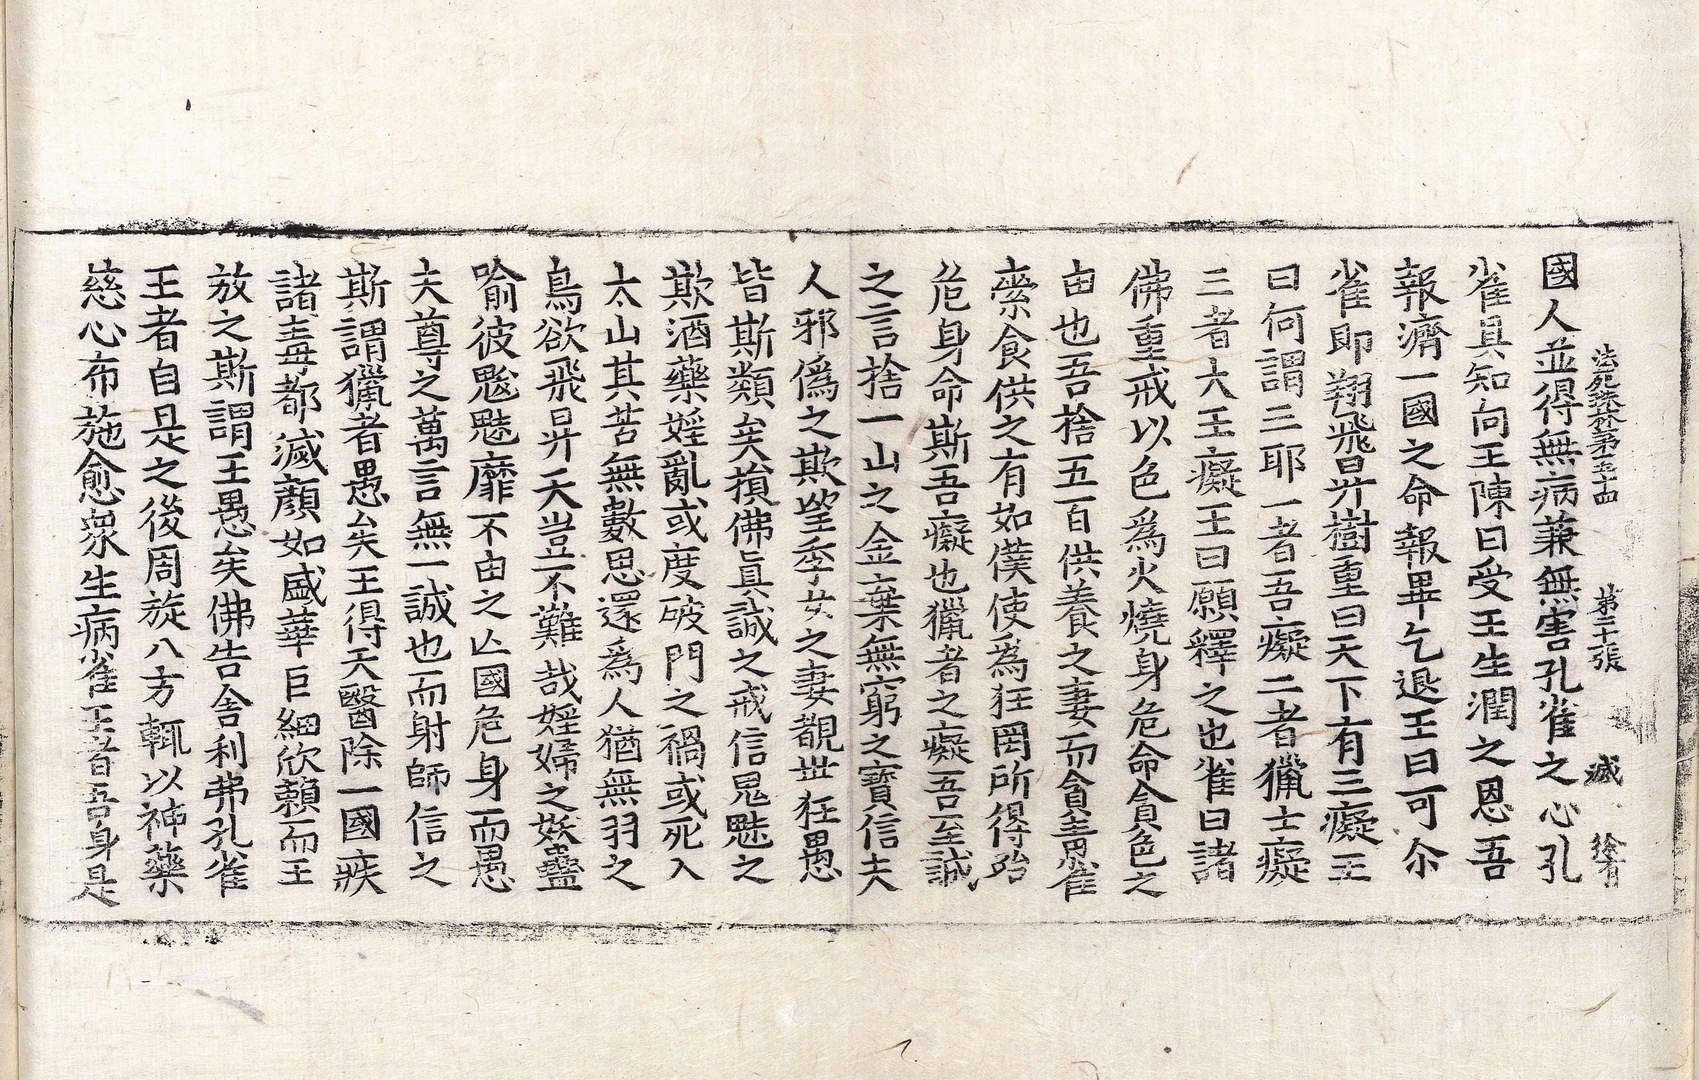 法苑珠林第五十四　第二十張　㓕
國人並得無病兼無害孔雀之心孔
雀具知向王陳曰受王生潤之恩吾
報濟一國之命報畢乞退王曰可尒
雀即翔飛昇樹重曰天下有三癡王
曰何謂三耶一者吾癡二者獵士癡
三者大王癡王曰願釋之也雀曰諸
佛重戒以色爲火燒身危命貪色之
由也吾捨五百供養之妻而貪青雀
索食供之有如僕使爲狂罔所得殆
危身命斯吾癡也獵者之癡吾至誠
之言捨一山之金棄無窮之寶信夫
人邪僞之欺望季女之妻覩世狂愚
皆斯類矣損佛眞誠之戒信鬼魅之
欺酒藥婬亂或度破門之禍或死入
太山其苦無數思還爲人猶無羽之
鳥欲飛昇天豈不難哉婬婦之妖蠱
喻彼魃魅靡不由之亾國危身而愚
夫尊之萬言無一誠也而射師信之
斯謂獵者愚矣王得天醫除一國疾
諸毒都滅顏如盛華巨細欣賴而王
放之斯謂王愚矣佛告舍利弗孔雀
王者自是之後周旋八方輒以神藥
慈心布施愈衆生病雀王者吾身是